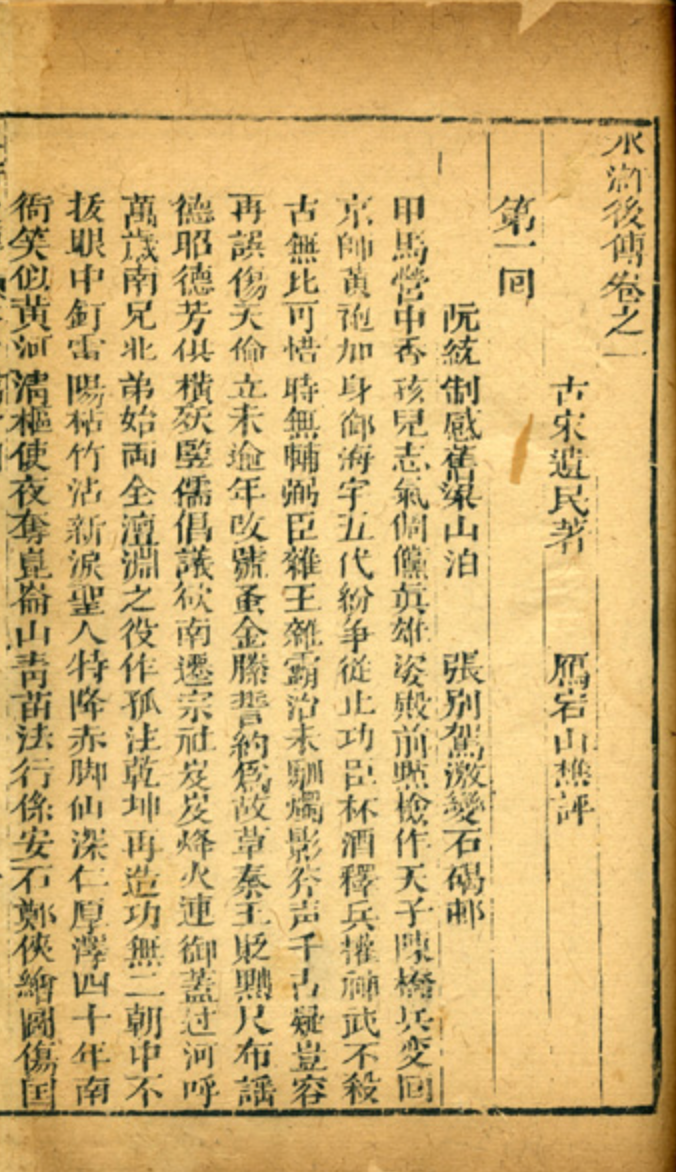 水滸後傳卷之一
古宋遺民著 鴈宕山樵評
第一回
阮統制感舊梁山泊 張別駕激變石碣邨
甲馬營中香孩兒志氣倜儻真雄姿殿前㸃檢作天子陳橋兵变回
京師黃袍加身御海宇五代紛争從止功臣杯酒釋兵權神武不殺
古無比可惜時無輔弼臣雜王雜霸治未馴燭影斧声千古疑豈容
再誤傷天倫立未逾年改號蚤金縢誓約爲故草秦王貶黜尺布謡
德昭德芳俱橫殀竪儒倡議欲南遷宗社岌岌烽火連御蓋过河呼
萬歲南兄北弟始両全澶淵之役作孤注乾坤再造功無二朝中不
拔眼中釘雷陽枯竹沾新淚聖人特降赤脚仙深仁厚澤四十年南
衙笑似黃河清樞使夜奪崑崙山靑苗法行係安石鄭俠繪圖傷国